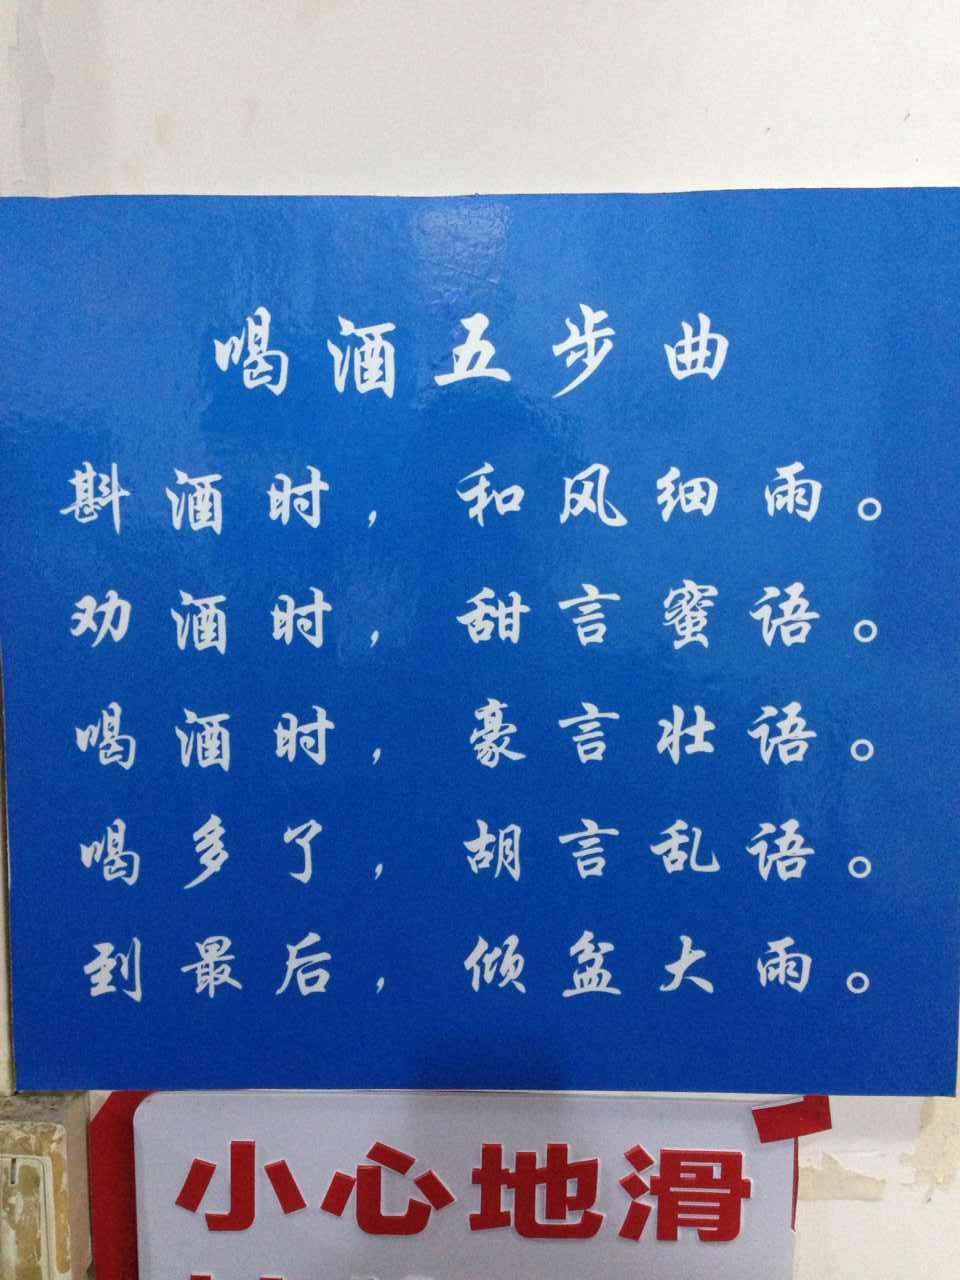 喝酒五步曲
斟酒时，和风细雨。
劝酒时，甜言蜜语。
喝酒时，豪言壮语。
喝多了，胡言乱语。
到最后，倾盆大雨。
小心地滑